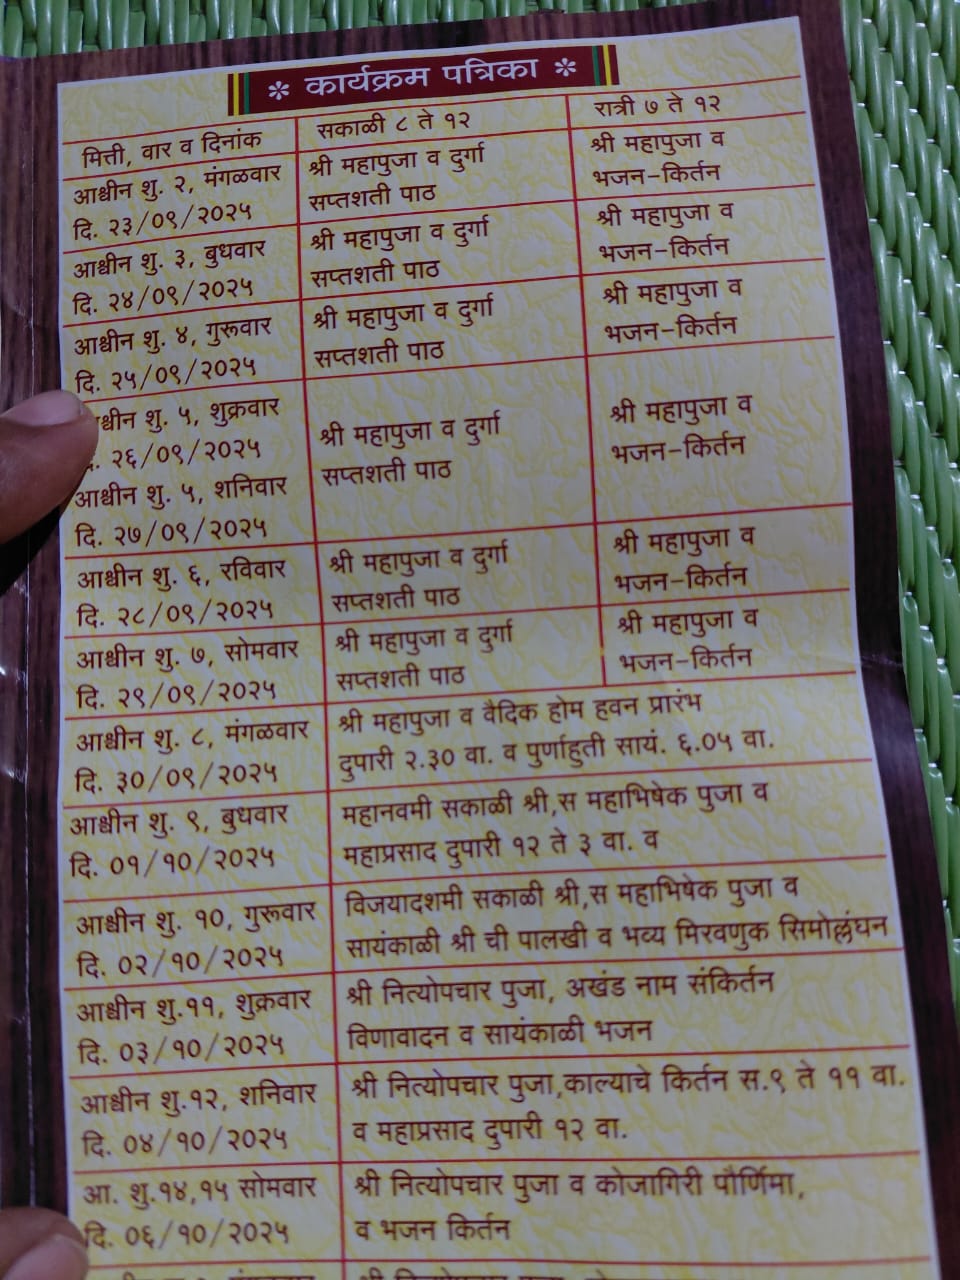 * कार्यक्रम पत्रिका *
मित्ती, वार व दिनांक
सकाळी ८ ते १२
रात्री ७ ते १२
आश्वीन शु. २, मंगळवार
दि. २३/०९/२०२५
श्री महापुजा व दुर्गा
सप्तशती पाठ
श्री महापुजा व
भजन-किर्तन
आश्वीन शु. ३, बुधवार
दि. २४/०९/२०२५
श्री महापुजा व दुर्गा
सप्तशती पाठ
श्री महापुजा व
भजन-किर्तन
आश्वीन शु. ४, गुरूवार
दि. २५/०९/२०२५
श्री महापुजा व दुर्गा
सप्तशती पाठ
श्री महापुजा व
भजन-किर्तन
शु. ५, शुक्रवार
२६/०९/२०२५
आश्वीन शु. ५, शनिवार
दि. २७/०९/२०२५
श्री महापुजा व दुर्गा
सप्तशती पाठ
श्री महापुजा व
भजन-किर्तन
आश्वीन शु. ६, रविवार
दि. २८/०९/२०२५
श्री महापुजा व दुर्गा
सप्तशती पाठ
श्री महापुजा व
भजन-किर्तन
आश्वीन शु. ७, सोमवार
दि. २९/०९/२०२५
श्री महापुजा व दुर्गा
सप्तशती पाठ
श्री महापुजा व
भजन-किर्तन
आश्वीन शु. ८, मंगळवार
दि. ३०/०९/२०२५
श्री महापुजा व वैदिक होम हवन प्रारंभ
दुपारी २.३० वा. व पुर्णाहुती सायं. ६.०५ वा.
आश्वीन शु. ९, बुधवार
दि. ०१/१०/२०२५
महानवमी सकाळी श्री,स महाभिषेक पुजा व
महाप्रसाद दुपारी १२ ते ३ वा. व
आश्वीन शु. १०, गुरूवार
दि. ०२/१०/२०२५
विजयादशमी सकाळी श्री,स महाभिषेक पुजा व
सायंकाळी श्री ची पालखी व भव्य मिरवणुक सिमोल्लंघन
आश्वीन शु.११, शुक्रवार
दि. ०३/१०/२०२५
श्री नित्योपचार पुजा, अखंड नाम संकिर्तन
विणावादन व सायंकाळी भजन
आश्वीन शु.१२, शनिवार
दि. ०४/१०/२०२५
श्री नित्योपचार पुजा,काल्याचे किर्तन स.९ ते ११ वा.
व महाप्रसाद दुपारी १२ वा.
आ. शु.१४,१५ सोमवार
दि. ०६/१०/२०२५
श्री नित्योपचार पुजा व कोजागिरी पौर्णिमा,
व भजन किर्तन